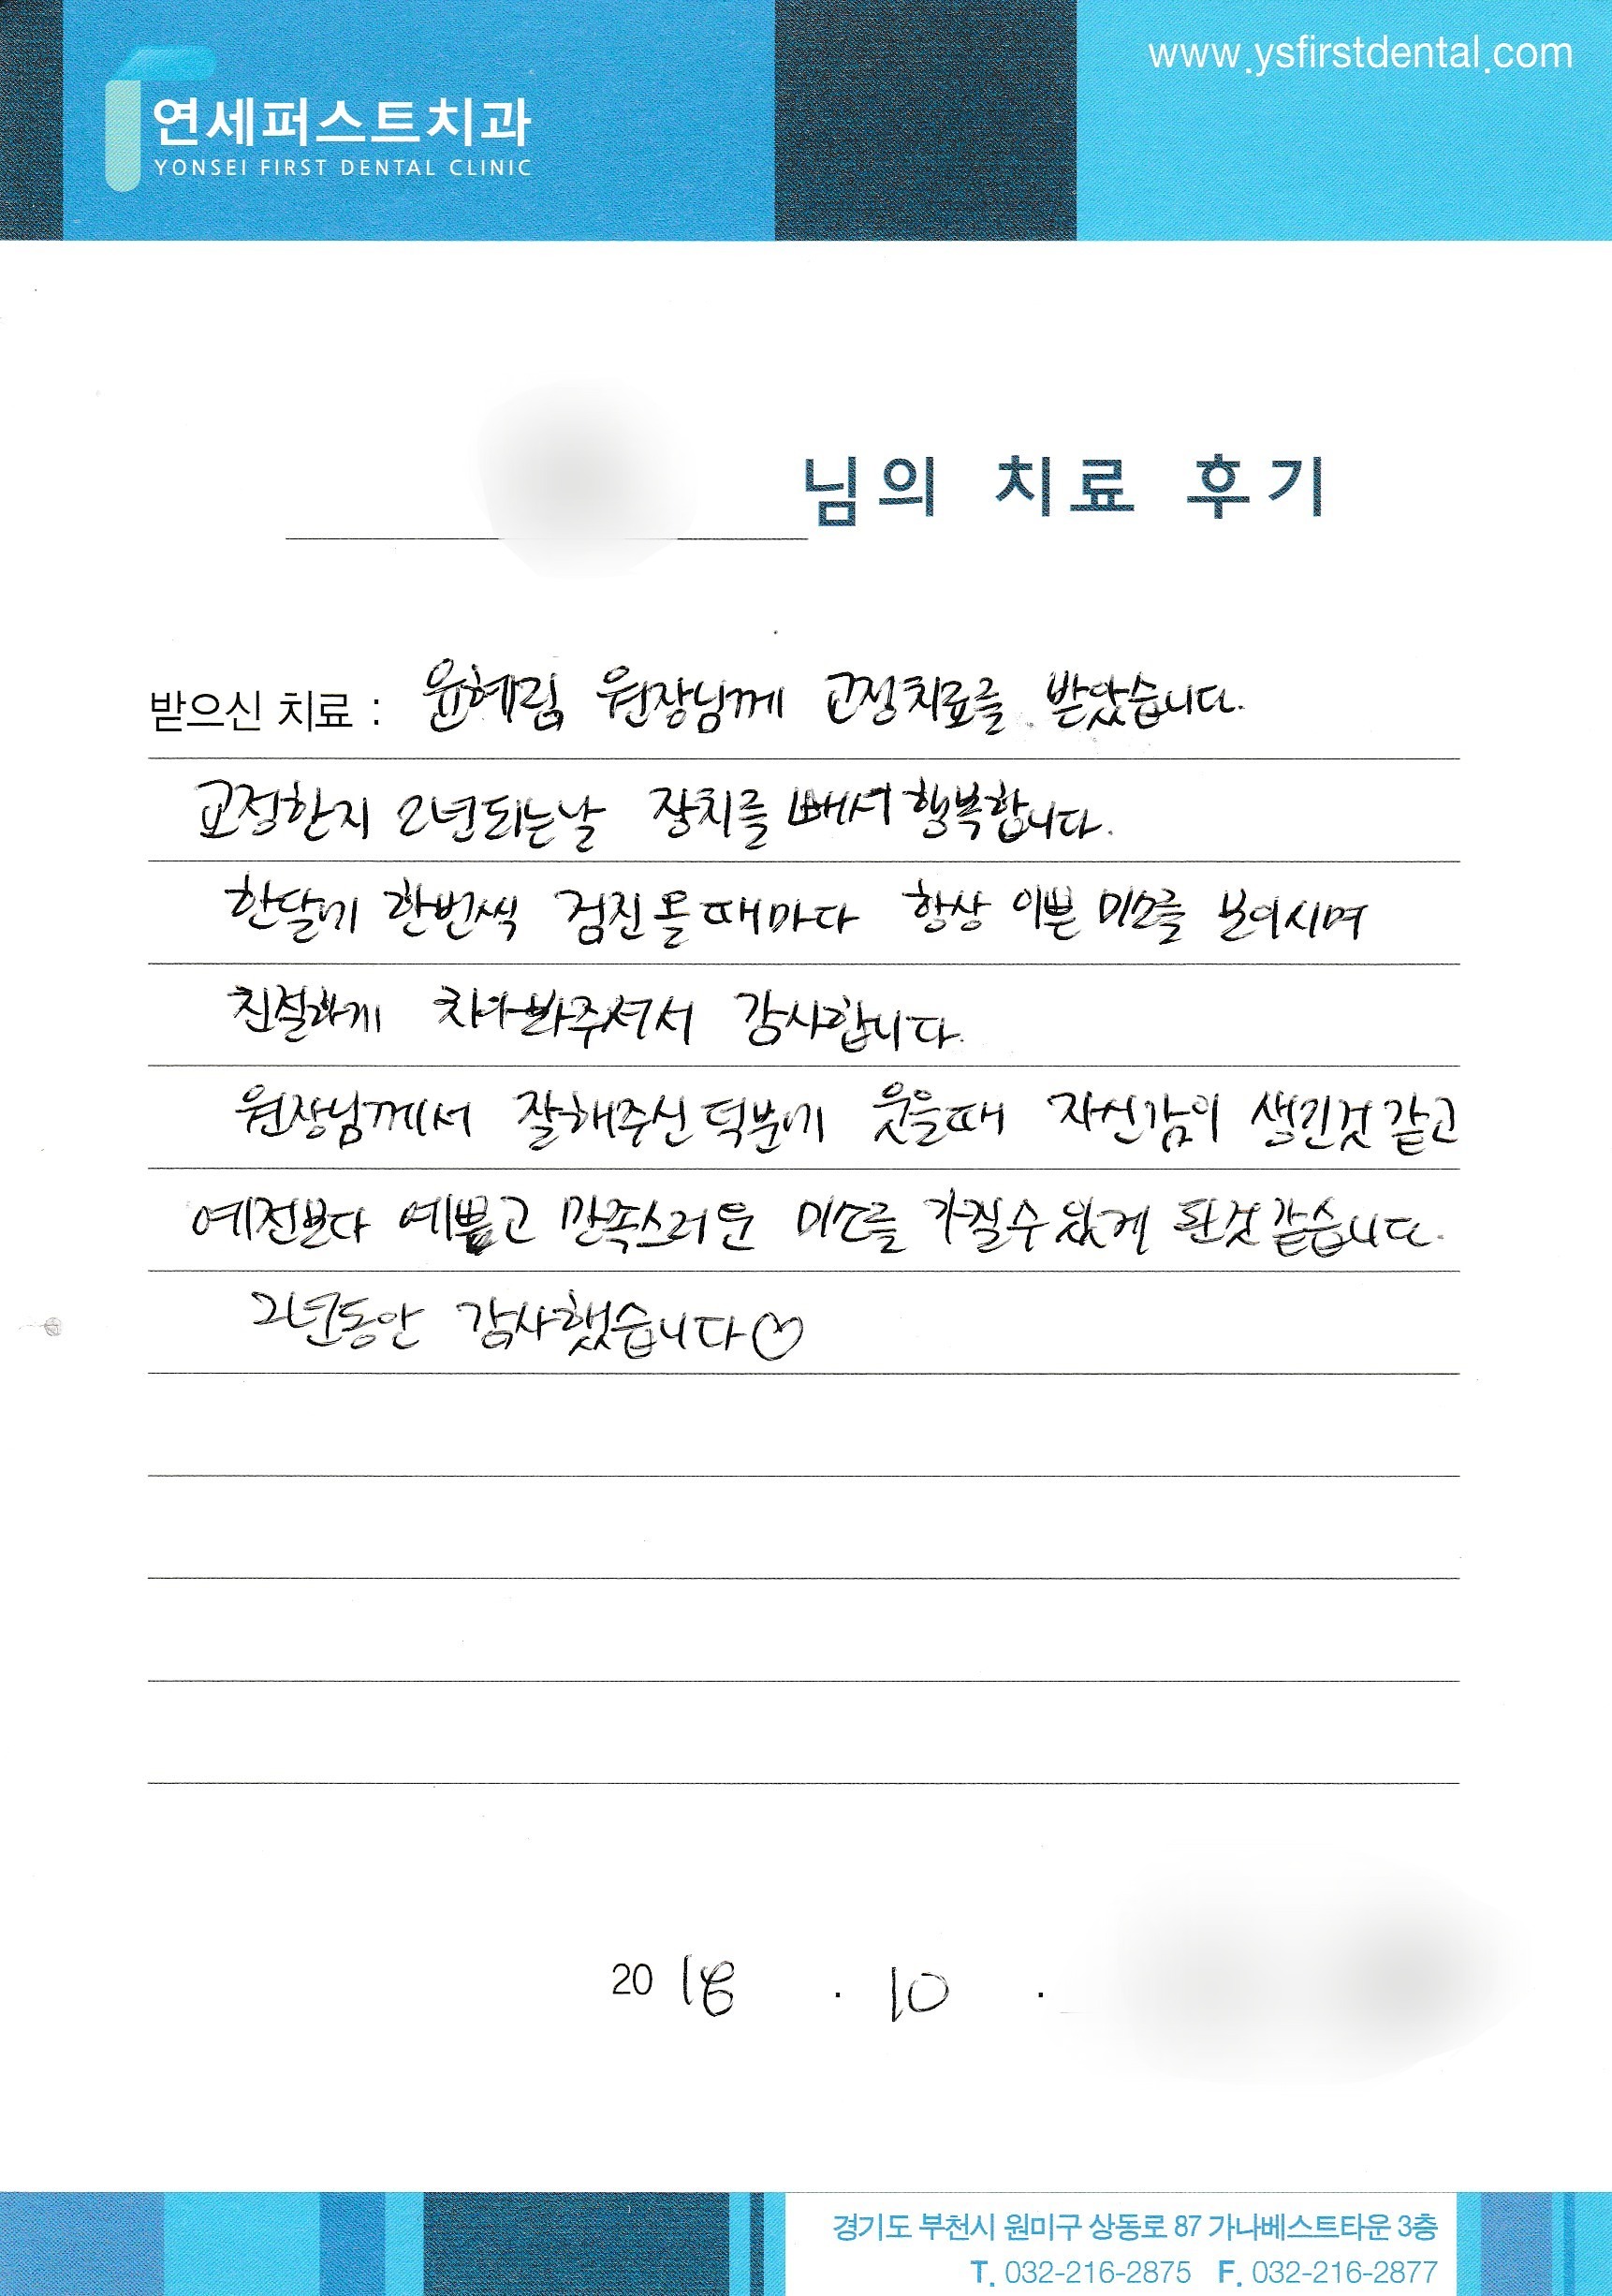 www.ysfirstdental.com
연세퍼스트치과
YONSEI FIRST DENTAL CLINIC
님의 치료 후기
받으신 치료 : 윤혜림 원장님께 교정치료를 받았습니다.
교정한지 2년되는날 장치를 빼서 행복합니다.
한달에 한번씩 검진올때마다 항상 이쁜 미소를 보이시며
친절하게 치아봐주셔서 감사합니다.
원장님께서 잘해주신 덕분에 웃을때 자신감이 생긴것 같고
예전보다 예쁘고 만족스러운 미소를 가질수 있게 된것 같습니다.
2년동안 감사했습니다♡
2018 . 10 .
경기도 부천시 원미구 상동로 87 가나베스트타운 3층
T. 032-216-2875 F. 032-216-2877